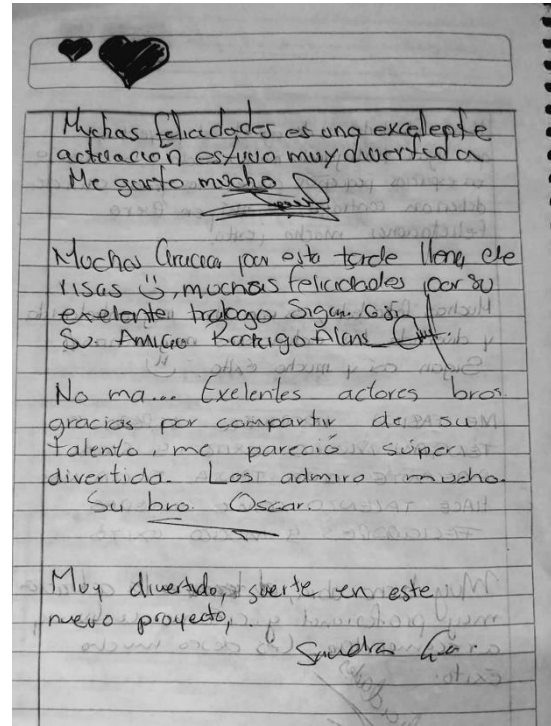 Muchas felicidades es una excelente
actuación estuvo muy divertida
Me gusto mucho
Muchas Gracias por esta tarde llena de
risas, muchas felicidades por su
exelente trabajo Sigan así
Su Amigo Rodrigo Alans
No ma... Exelentes actores bros
gracias por compartir de su
talento, me pareció súper
divertida. Los admiro mucho.
Su bro Oscar.
Muy divertido, suerte en este
nuevo proyecto,
Sandra